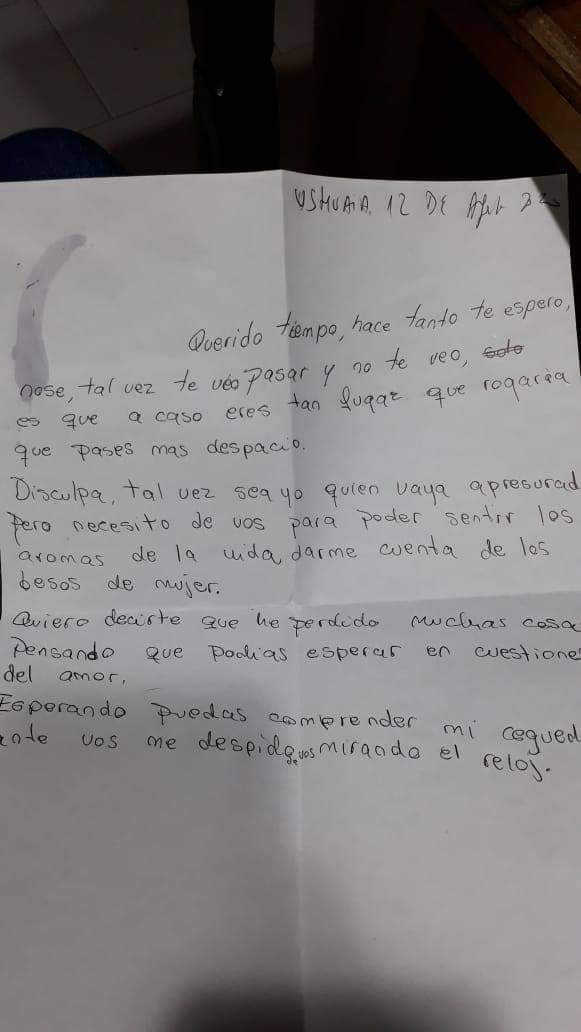 USHUAIA, 12 DE
Querido tiempo, hace tanto te espero,
nose, tal vez te véo pasar y no te veo, solo
es que a caso eres tan fugaz que rogaría
que pases mas despacio.
Disculpa, tal vez sea yo quien vaya apresurad
Pero necesito de vos para poder sentir los
aromas de la vida, darme cuenta de los
besos de mujer.
Quiero decirte que he perdido muchas cosa
Pensando que podías esperar en cuestione
del amor.
Esperando puedas comprender mi cegued
ante vos me despido de vos mirando el reloj.